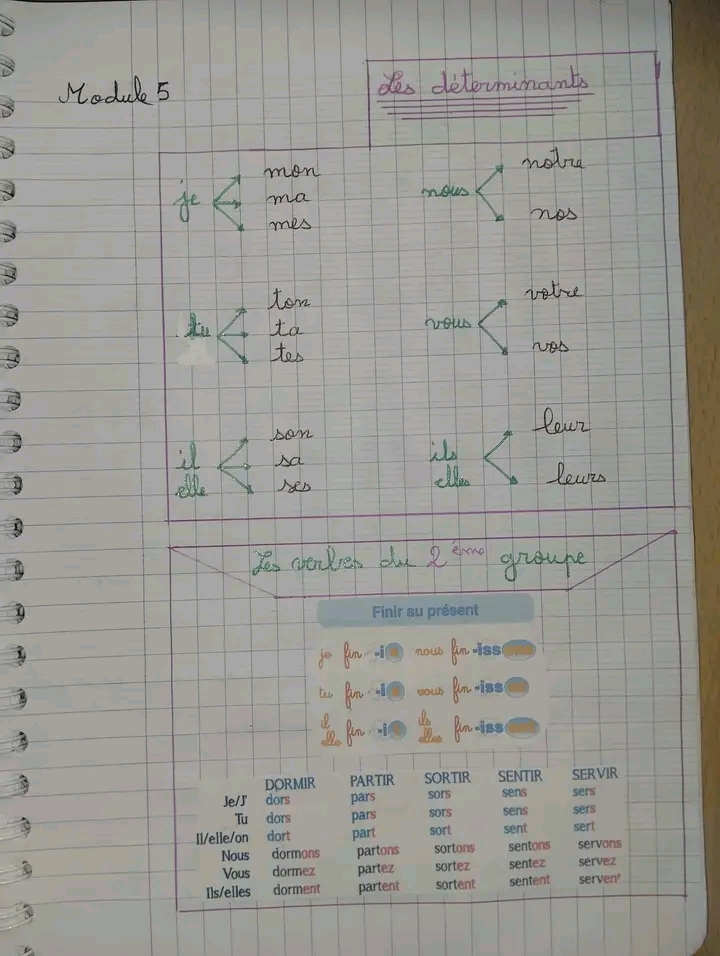 Module 5
Les déterminants
je mon ma mes
nous notre nos
tu ton ta tes
vous votre vos
il elle son sa ses
ils elles leur leurs
Les verbes du 2ème groupe
Finir au présent
je fin -i nous fin -iss
tu fin -i vous fin -iss
il elle fin -i ils elles fin -iss
DORMIR PARTIR SORTIR SENTIR SERVIR
Je/J' dors pars sors sens sers
Tu dors pars sors sens sers
Il/elle/on dort part sort sent sert
Nous dormons partons sortons sentons servons
Vous dormez partez sortez sentez servez
Ils/elles dorment partent sortent sentent servent